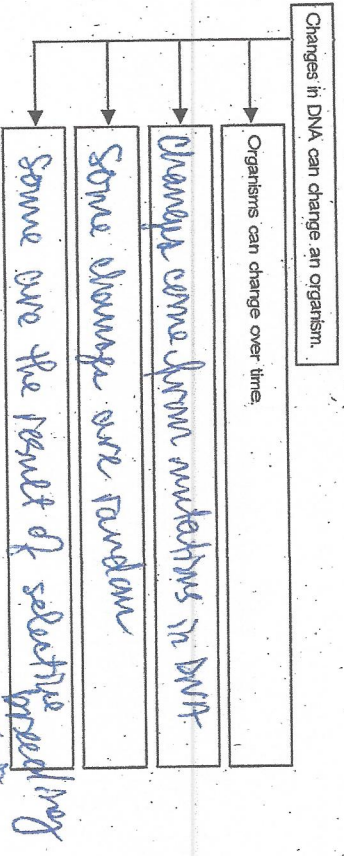 Changes in DNA can change an organism.
Organisms can change over time.
Changes come from mutations in DNA
Some changes are random
Some are the result of selective
breeding